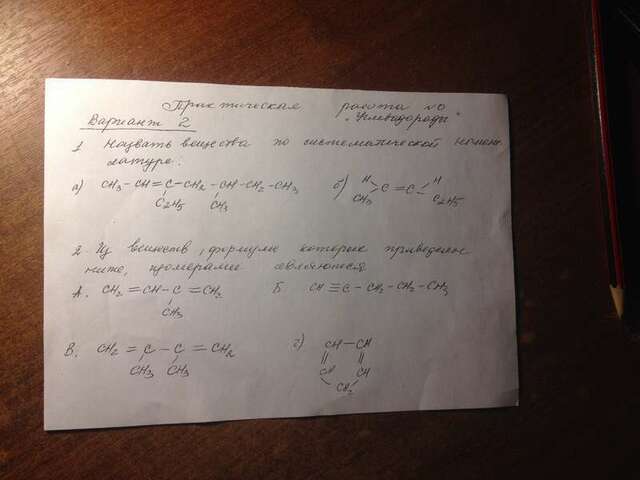 Практическая работа по
Вариант 2 "Углеводороды"
1 Назвать вещества по систематической номенк
латуре:
а) CH3 - CH = C - CH2 - CH - CH2 - CH3 б) H C = C H
C2H5 CH3 CH3 C2H5
2 Из веществ, формулы которых приведены
ниже, изомерами являются
А. CH2 = CH - C = CH2 Б. CH ≡ C - CH2 - CH2 - CH3
CH3
В. CH2 = C - C = CH2 г) CH - CH
CH3 CH3 CH CH
CH2